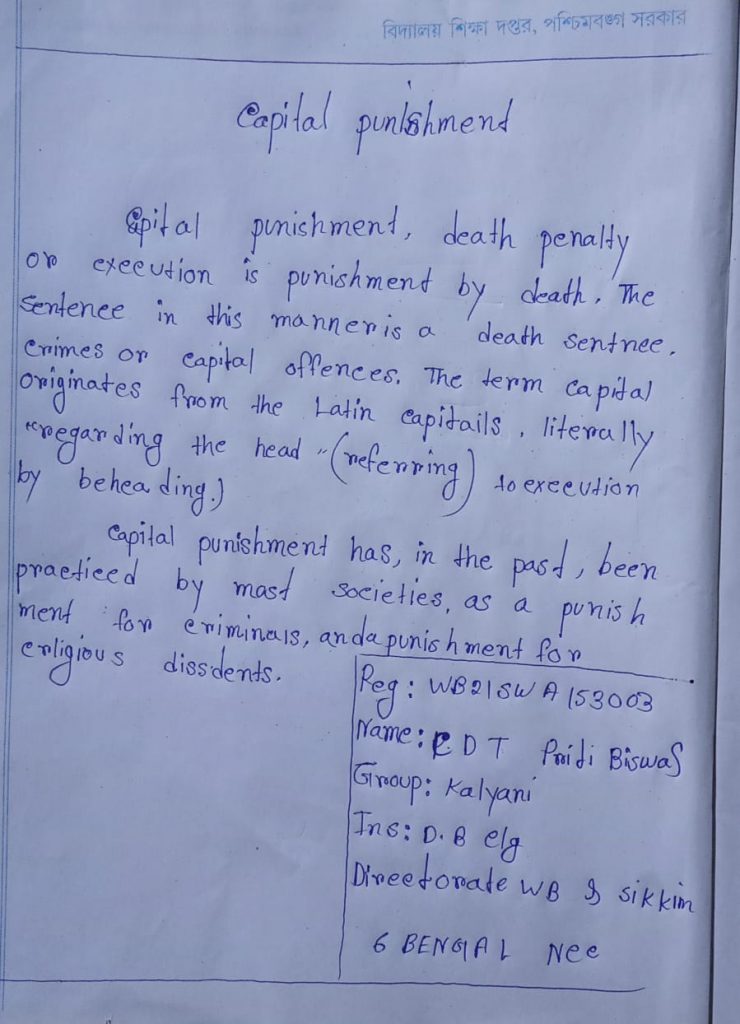 বিদ্যালয় শিক্ষা দপ্তর, পশ্চিমবঙ্গ সরকার
Capital punishment
Capital punishment, death penalty
or execution is punishment by death. The
sentence in this manner is a death sentnce.
crimes or capital offences. The term capital
originates from the Latin capitails, literally
"regarding the head" (referring) to execution
by beheading.)
Capital punishment has, in the past, been
practiced by mast societies, as a punish
ment for criminals, and a punishment for
erligious dissdents.
Reg: WB21SWA153003
Name: CDT Pridi Biswas
Group: Kalyani
Ins: D.B clg
Directorate WB & sikkim
6 BENGAL Ncc